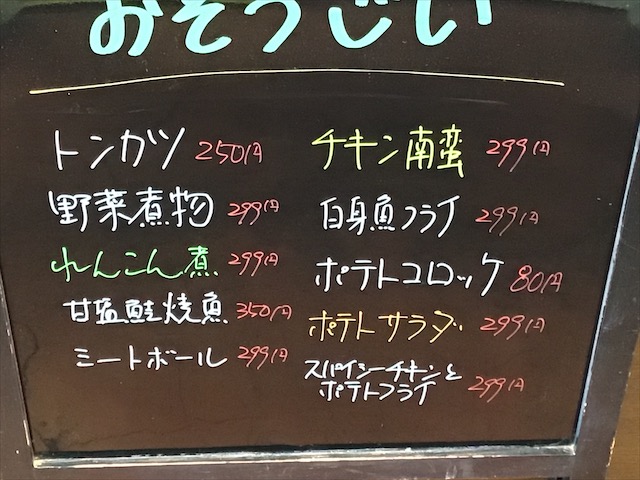 おそうざい
トンカツ 250円
野菜煮物 299円
れんこん煮 299円
甘塩鮭焼魚 350円
ミートボール 299円
チキン南蛮 299円
白身魚フライ 299円
ポテトコロッケ 80円
ポテトサラダ 299円
スパイシーチキンと
ポテトフライ 299円